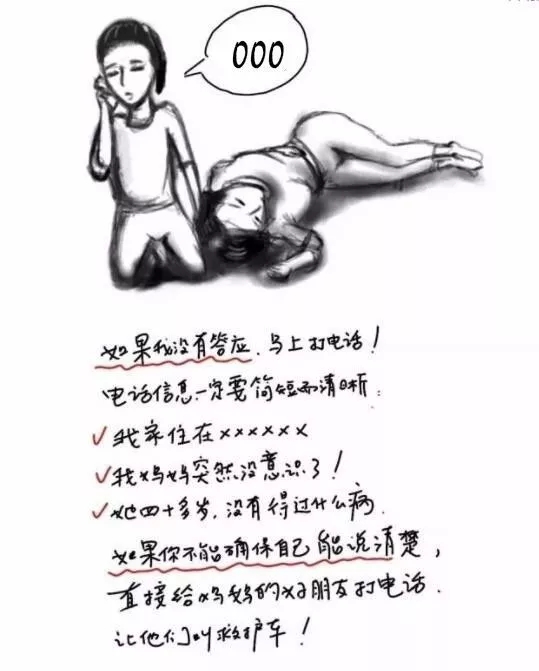 000
如果我没有答应.马上打电话!
电话信息一定要简短而清晰:
✓我家住在xxxxxx
✓我妈妈突然没意识了!
✓她四十多岁.没有得过什么病.
如果你不能确保自己能说清楚,
直接给妈妈的好朋友打电话.
让他们叫救护车!